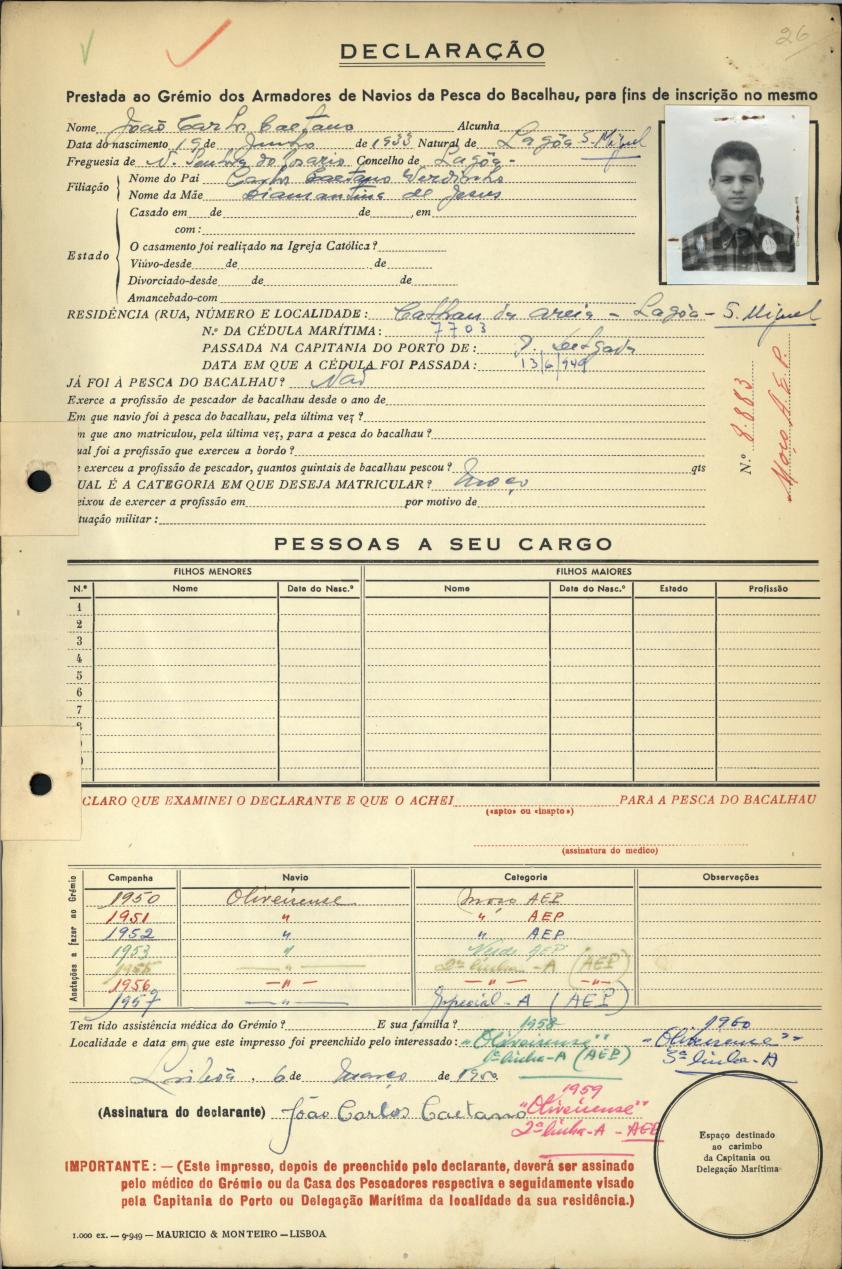 26
DECLARAÇÃO
Prestada ao Grémio dos Armadores de Navios da Pesca do Bacalhau, para fins de inscrição no mesmo
Nome João Carlos Caetano Alcunha
Data do nascimento 19 de Junho de 1933 Natural de Lagôa S. Miguel
Freguesia de N. Senhora do Rosario Concelho de Lagôa -
Filiação
Nome do Pai Carlos Caetano Verdinho
Nome da Mãe Diamantina de Jesus
Estado
Casado em de de , em
com:
O casamento foi realizado na Igreja Católica?
Viúvo-desde de de
Divorciado-desde de de
Amancebado-com
RESIDÊNCIA (RUA, NÚMERO E LOCALIDADE: da Areia - Lagôa - S. Miguel
N.º DA CÉDULA MARÍTIMA: 7703
PASSADA NA CAPITANIA DO PORTO DE: P. Delgada
DATA EM QUE A CÉDULA FOI PASSADA: 13/6/949
JÁ FOI À PESCA DO BACALHAU? Não
Exerce a profissão de pescador de bacalhau desde o ano de
Em que navio foi à pesca do bacalhau, pela última vez?
m que ano matriculou, pela última vez, para a pesca do bacalhau?
ual foi a profissão que exerceu a bordo?
e exerceu a profissão de pescador, quantos quintais de bacalhau pescou? qts
UAL É A CATEGORIA EM QUE DESEJA MATRICULAR? Moço
eixou de exercer a profissão em por motivo de
tuação militar:
N.º 8.883
Moço A.E.P.
PESSOAS A SEU CARGO
FILHOS MENORES FILHOS MAIORES
N.º Nome Data do Nasc.º Nome Data do Nasc.º Estado Profissão
1
2
3
4
5
6
7
CLARO QUE EXAMINEI O DECLARANTE E QUE O ACHEI PARA A PESCA DO BACALHAU
(«apto» ou «inapto»)
(assinatura do medico)
Anotações a fazer ao Grémio
Campanha Navio Categoria Observações
1950 Oliveirense Moço AEP
1951 " " AEP
1952 " " AEP
1953 " Verde AEP
1955 — " — 2ª linha - A (AEP)
1956 — " — — " — — " —
1957 — " — Especial - A (AEP)
Tem tido assistência médica do Grémio? E sua família?
Localidade e data em que este impresso foi preenchido pelo interessado:
1958
"Oliveirense"
1ª linha-A (AEP)
1960
"Oliveirense"
3ª linha-A
Lisboa, 6 de Março de 1950
(Assinatura do declarante) João Carlos Caetano
1959
"Oliveirense"
2ª linha-A - AEP
Espaço destinado
ao carimbo
da Capitania ou
Delegação Marítima
IMPORTANTE: — (Este impresso, depois de preenchido pelo declarante, deverá ser assinado
pelo médico do Grémio ou da Casa dos Pescadores respectiva e seguidamente visado
pela Capitania do Porto ou Delegação Marítima da localidade da sua residência.)
1.000 ex. — 9-949 — MAURICIO & MONTEIRO — LISBOA